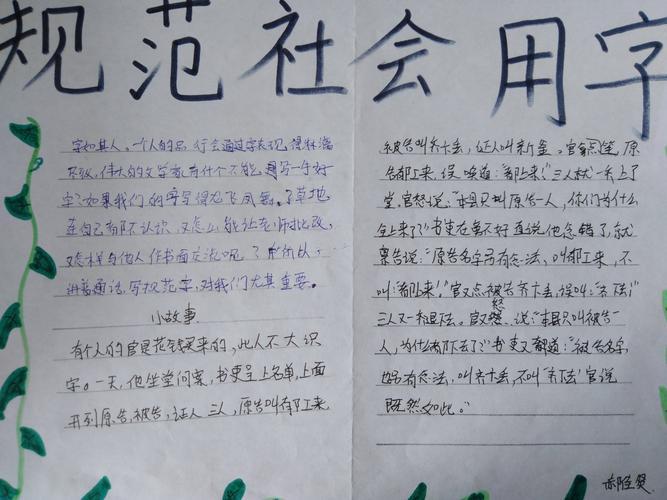 规范社会用字
字如其人。一个人的品行会通过字表现得淋漓
尽致,伟大的文学家有什么不能写一手好
字?如果我们的字写得龙飞凤舞。了草地
连自己有都不认识,又怎么能让老师批改,
又怎样与他人作书面交流呢?所以,
讲普通话,写规范字,对我们尤其重要。
小故事
有个人的官是花钱买来的,此人不大识
字。一天,他坐堂问案,书吏呈上名单,上面
开列原告,被告,证人三人,原告叫郁工来
被告叫齐卞丢,证人叫新釜。官点
告郁工来,误喊道:“都上来!”三人就一齐上了
堂,官想说:“本县只叫原告一人,你们为什么
全上来了?”书吏在案不好直说他念错了,就
禀告说:“原告名字另有念法,叫郁工来,不
叫‘都上来’!”官又点被告齐卞丢,误叫:“齐下去!”
三人又一起退下去。官又怒,说:“本县只叫被告一
人,为什么都下去了?”书吏又都道:“被告名字
也另有念法,叫齐卞丢,不叫‘齐下去’官说
既然如此。”